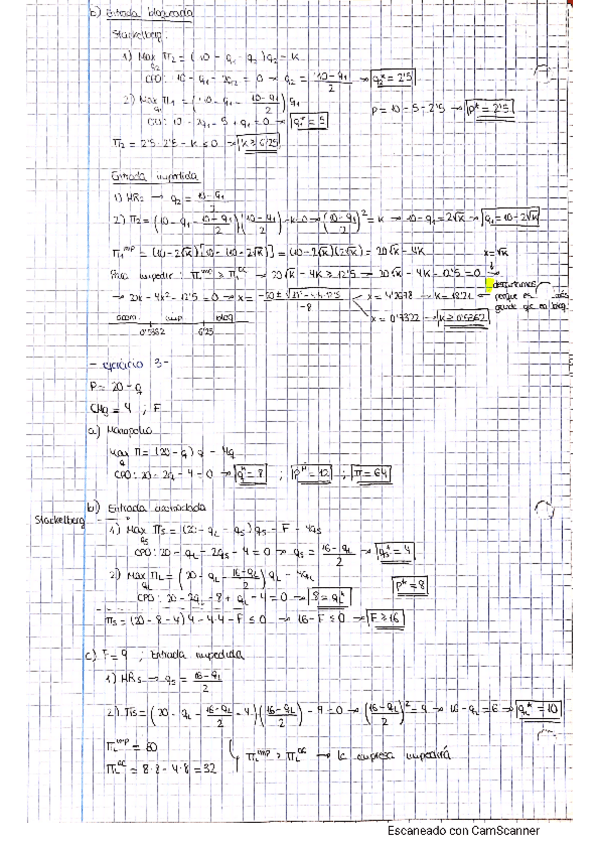 b) Entrada bloqueada
Stackelberg
1) Max π₂ = (10 - q₁ - q₂)q₂ - K
q₂
CPO: 10 - q₁ - 2q₂ = 0 → q₂ = (10 - q₁)/2 → q₂* = 2'5
2) Max π₁ = (10 - q₁ - (10 - q₁)/2) q₁
q₁
CPO: 10 - 2q₁ - 5 + q₁ = 0 → q₁* = 5
P = 10 - 5 - 2'5 → P* = 2'5
π₂ = 2'5 · 2'5 - K ≤ 0 → K ≥ 6'25
Entrada impedida
1) MR₂ → q₂ = (10 - q₁)/2
2) π₂ = (10 - q₁ - (10 - q₁)/2)((10 - q₁)/2) - K = 0 → ((10 - q₁)/2)² = K → 10 - q₁ = 2√K → q₁ = 10 - 2√K
π₁ᶦᵐᵖ = (10 - 2√K)[10 - (10 - 2√K)] = (10 - 2√K)(2√K) = 20√K - 4K
x = √K
Para impedir: π₁ᶦᵐᵖ ≥ π₁ᵃᶜ → 20√K - 4K ≥ 12'5 → 20√K - 4K - 12'5 = 0 →
→ 20x - 4x² - 12'5 = 0 → x =
x = 4'2678 → K = 18'21
descartamos
porque es más
grande que
x = 0'7322 → K ≥ 0'5362
acom. imp bloq
0'5362 6'25
- ejercicio 3 -
P = 20 - q
CMg = 4 ; F
a) Monopolio
Max π = (20 - q) q - 4q
q
CPO: 20 - 2q - 4 = 0 → qᴹ = 8 ; Pᴹ = 12 ; π = 64
b) Entrada
Stackelberg
1) Max πs = (20 - qL - qs) qs - F - 4qs
qs
CPO: 20 - qL - 2qs - 4 = 0 → qs = (16 - qL)/2 → qs* = 4
2) Max πL = (20 - qL - (16 - qL)/2) qL - 4qL
qL
P* = 8
CPO: 20 - 2qL - 8 + qL - 4 = 0 → 8 = qL*
πs = (20 - 8 - 4) 4 - 4·4 - F ≤ 0 → 16 - F ≤ 0 → F ≥ 16
c) F = 9 ; Entrada impedida
1) MRs → qs = (16 - qL)/2
2) πs = (20 - qL - (16 - qL)/2 - 4)((16 - qL)/2) - 9 = 0 → ((16 - qL)/2)² = 9 → 16 - qL = 6 → qL* = 10
πLᶦᵐᵖ = 60
πLᵃᶜ = 8·8 - 4·8 = 32
πLᶦᵐᵖ > πLᵃᶜ → la empresa impedirá
Escaneado con CamScanner